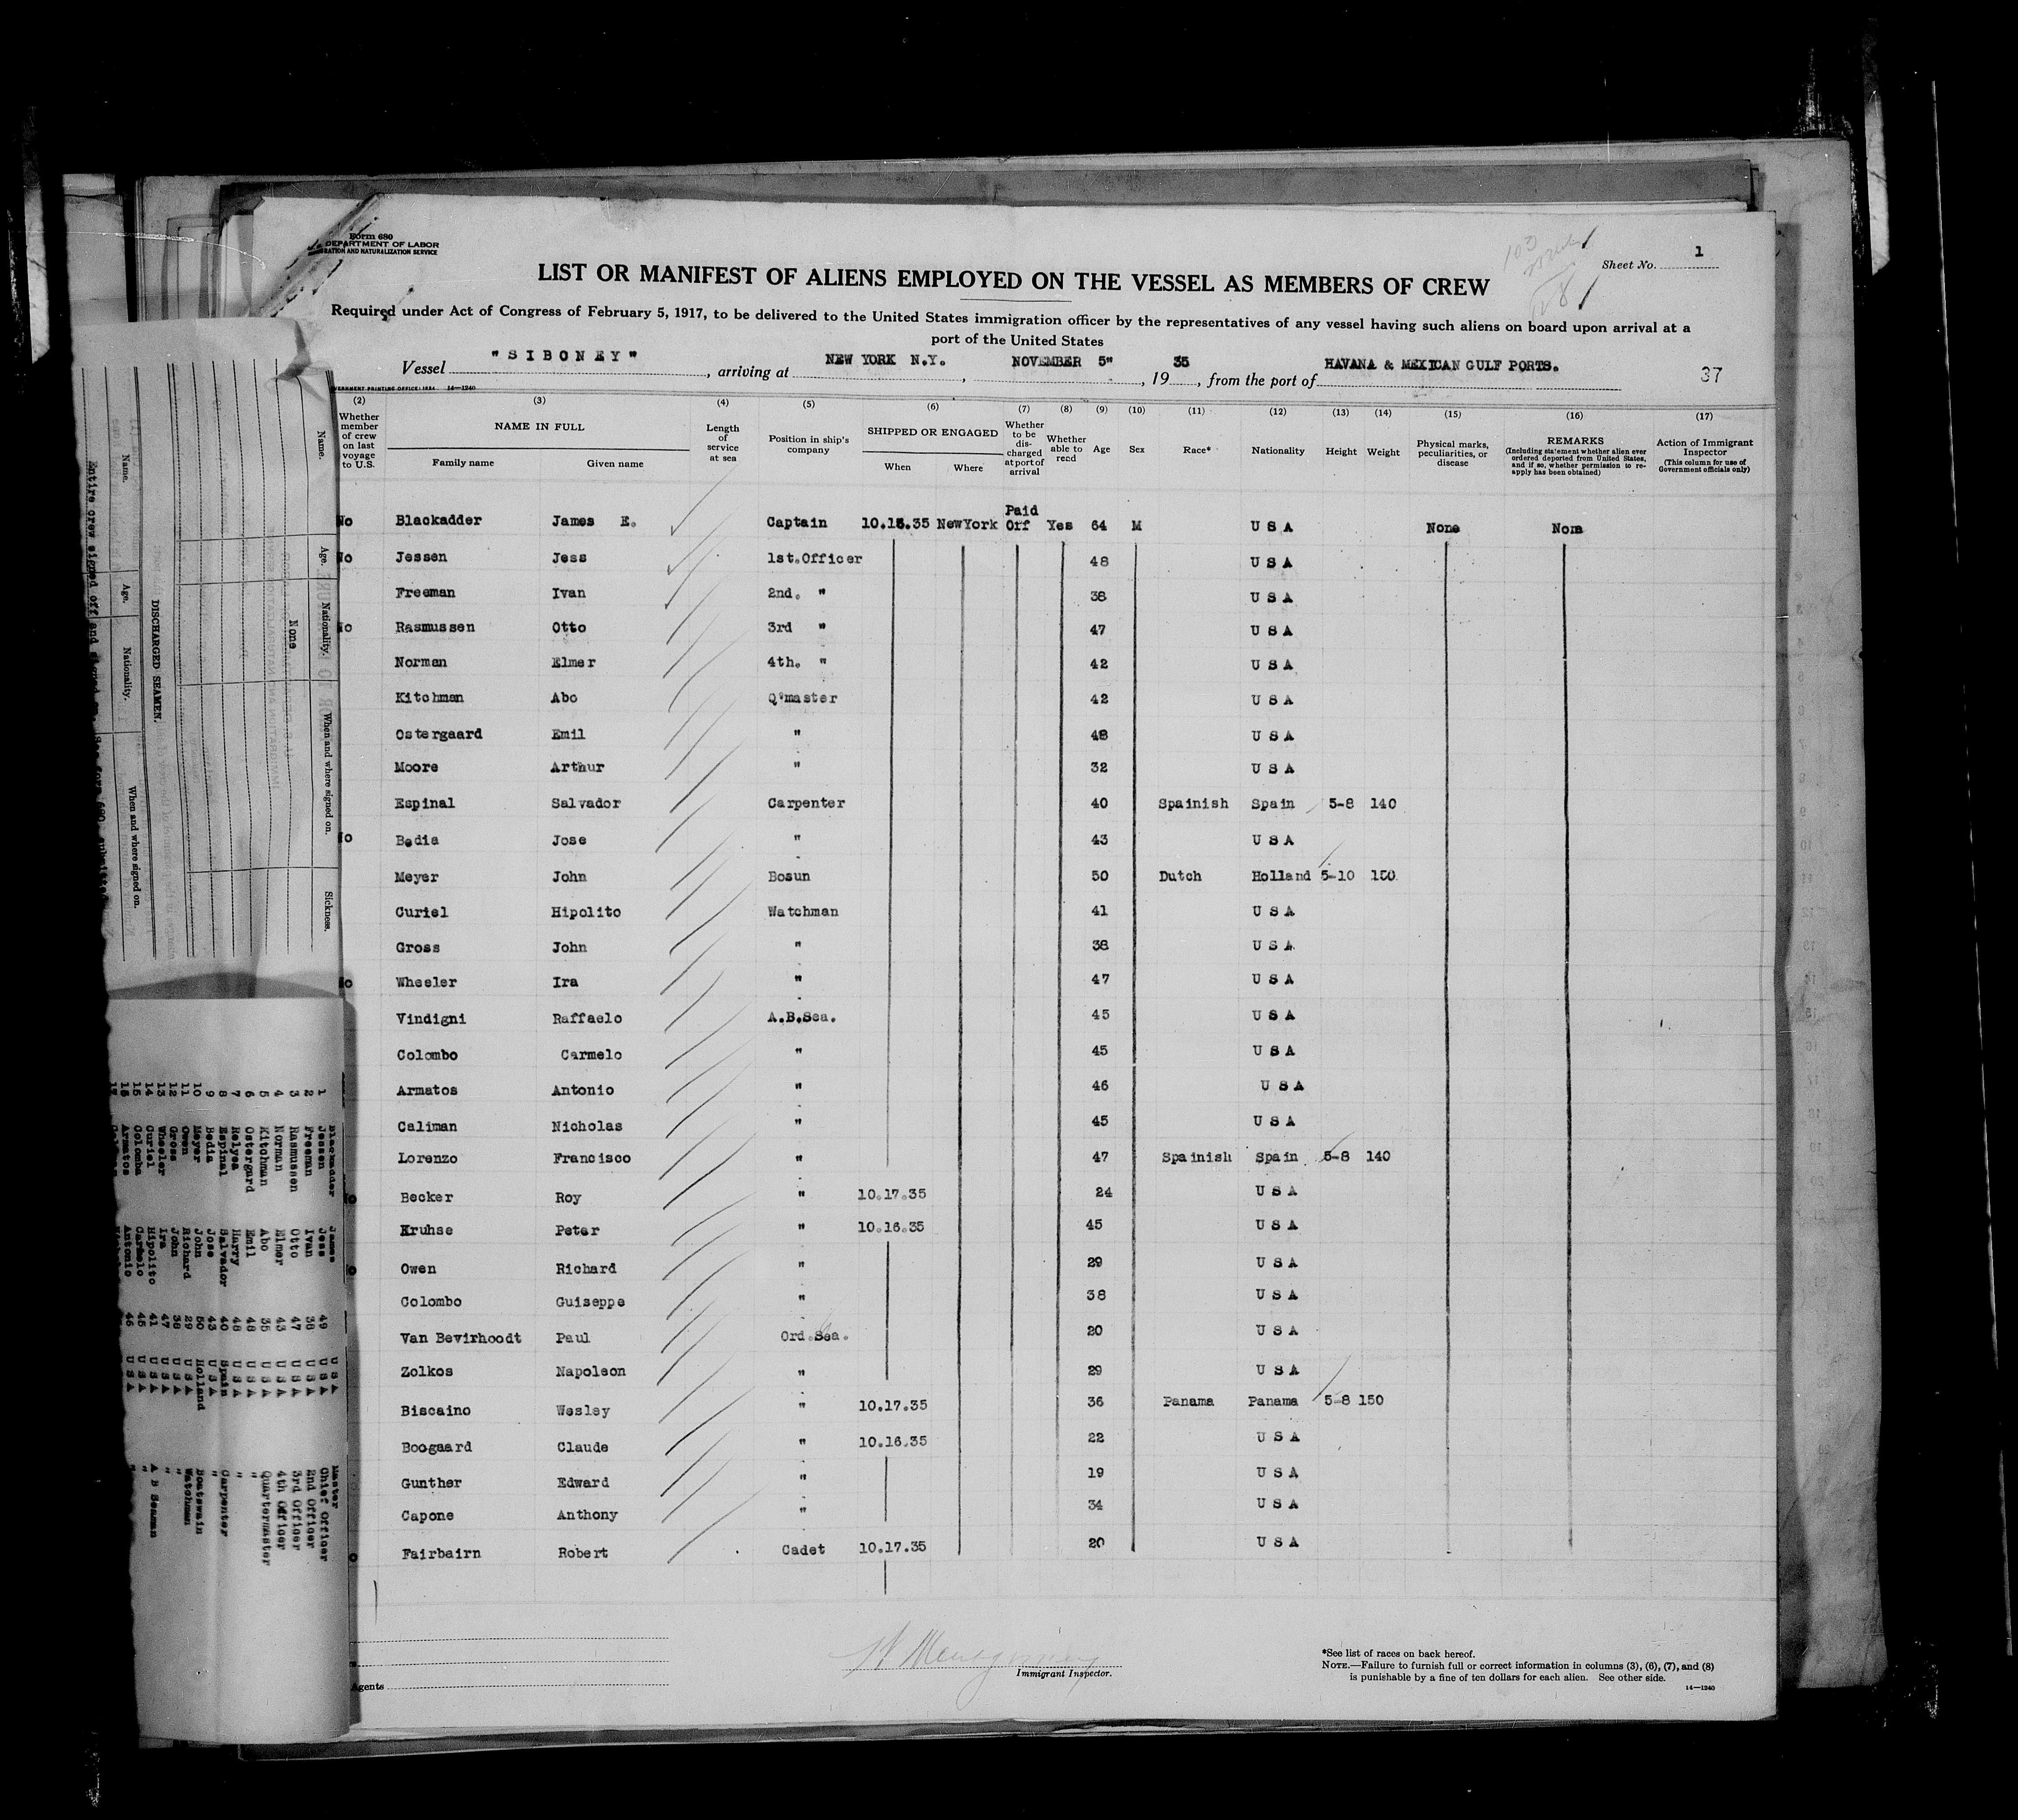 Form 680
DEPARTMENT OF LABOR
IMMIGRATION AND NATURALIZATION SERVICE
Sheet No. 1
LIST OR MANIFEST OF ALIENS EMPLOYED ON THE VESSEL AS MEMBERS OF CREW
Required under Act of Congress of February 5, 1917, to be delivered to the United States immigration officer by the representatives of any vessel having such aliens on board upon arrival at a
port of the United States
Vessel "SIBONEY", arriving at NEW YORK N.Y., NOVEMBER 5", 1935, from the port of HAVANA & MEXICAN GULF PORTS.
37
14—1240
(2) (3) (4) (5) (6) (7) (8) (9) (10) (11) (12) (13) (14) (15) (16) (17)
Whether member of crew on last voyage to U.S.
NAME IN FULL
Family name Given name
Length of service at sea
Position in ship's company
SHIPPED OR ENGAGED
When Where
Whether to be discharged at port of arrival
Whether able to read
Age
Sex
Race*
Nationality
Height
Weight
Physical marks, peculiarities, or disease
REMARKS
(Including statement whether alien ever ordered deported from United States, and if so, whether permission to reapply has been obtained)
Action of Immigrant Inspector
(This column for use of Government officials only)
No Blackadder James E. Captain 10.15.35 NewYork Paid Off Yes 64 M U S A None None
No Jessen Jess 1st.Officer 48 U S A
Freeman Ivan 2nd. " 38 U S A
No Rasmussen Otto 3rd " 47 U S A
Norman Elmer 4th. " 42 U S A
Kitchman Abo Q'master 42 U S A
Ostergaard Emil " 48 U S A
Moore Arthur " 32 U S A
Espinal Salvador Carpenter 40 Spainish Spain 5-8 140
No Bedia Jose " 43 U S A
Meyer John Bosun 50 Dutch Holland 5-10 150
Curiel Hipolito Watchman 41 U S A
Gross John " 38 U S A
No Wheeler Ira " 47 U S A
Vindigni Raffaelo A.B.Sea. 45 U S A
Colombo Carmelo " 45 U S A
Armatos Antonio " 46 U S A
Caliman Nicholas " 45 U S A
Lorenzo Francisco " 47 Spainish Spain 5-8 140
No Becker Roy " 10.17.35 24 U S A
Kruhse Peter " 10.16.35 45 U S A
No Owen Richard " 29 U S A
Colombo Guiseppe " 38 U S A
Van Bevirhoodt Paul Ord.Sea. 20 U S A
Zolkos Napoleon " 29 U S A
Biscaino Wesley " 10.17.35 36 Panama Panama 5-8 150
Boogaard Claude " 10.16.35 22 U S A
Gunther Edward " 19 U S A
Capone Anthony " 34 U S A
No Fairbairn Robert Cadet 10.17.35 20 U S A
Agents
Immigrant Inspector.
*See list of races on back hereof.
NOTE.—Failure to furnish full or correct information in columns (3), (6), (7), and (8)
is punishable by a fine of ten dollars for each alien. See other side.
14—1240
Name. Age. Nationality. When and where signed on. Sickness.
None
DISCHARGED SEAMEN.
Name. Age. Nationality. When and where signed on.
Entire crew signed off and signed
Blackadder James U S A Master
1 Jessen Jess 49 U S A Chief Officer
2 Freeman Ivan 38 U S A 2nd Officer
3 Rasmussen Otto 47 U S A 3rd Officer
4 Norman Elmer 43 U S A 4th Officer
5 Kitchman Abo 35 U S A Quartermaster
6 Ostergard Emil 48 U S A "
7 Relyea Harry 48 U S A "
8 Espinal Salvador 40 Spain Carpenter
9 Bedia Jose 43 U S A "
10 Meyer John 50 Holland Boatswain
11 Owen Richard 29 U S A Watchman
12 Gross John 38 U S A "
13 Wheeler Ira 47 U S A "
14 Curiel Hipolito 41 U S A A B Seaman
15 Colomba Carmelo 45 U S A "
16 Armatos Antonio 46 U S A "